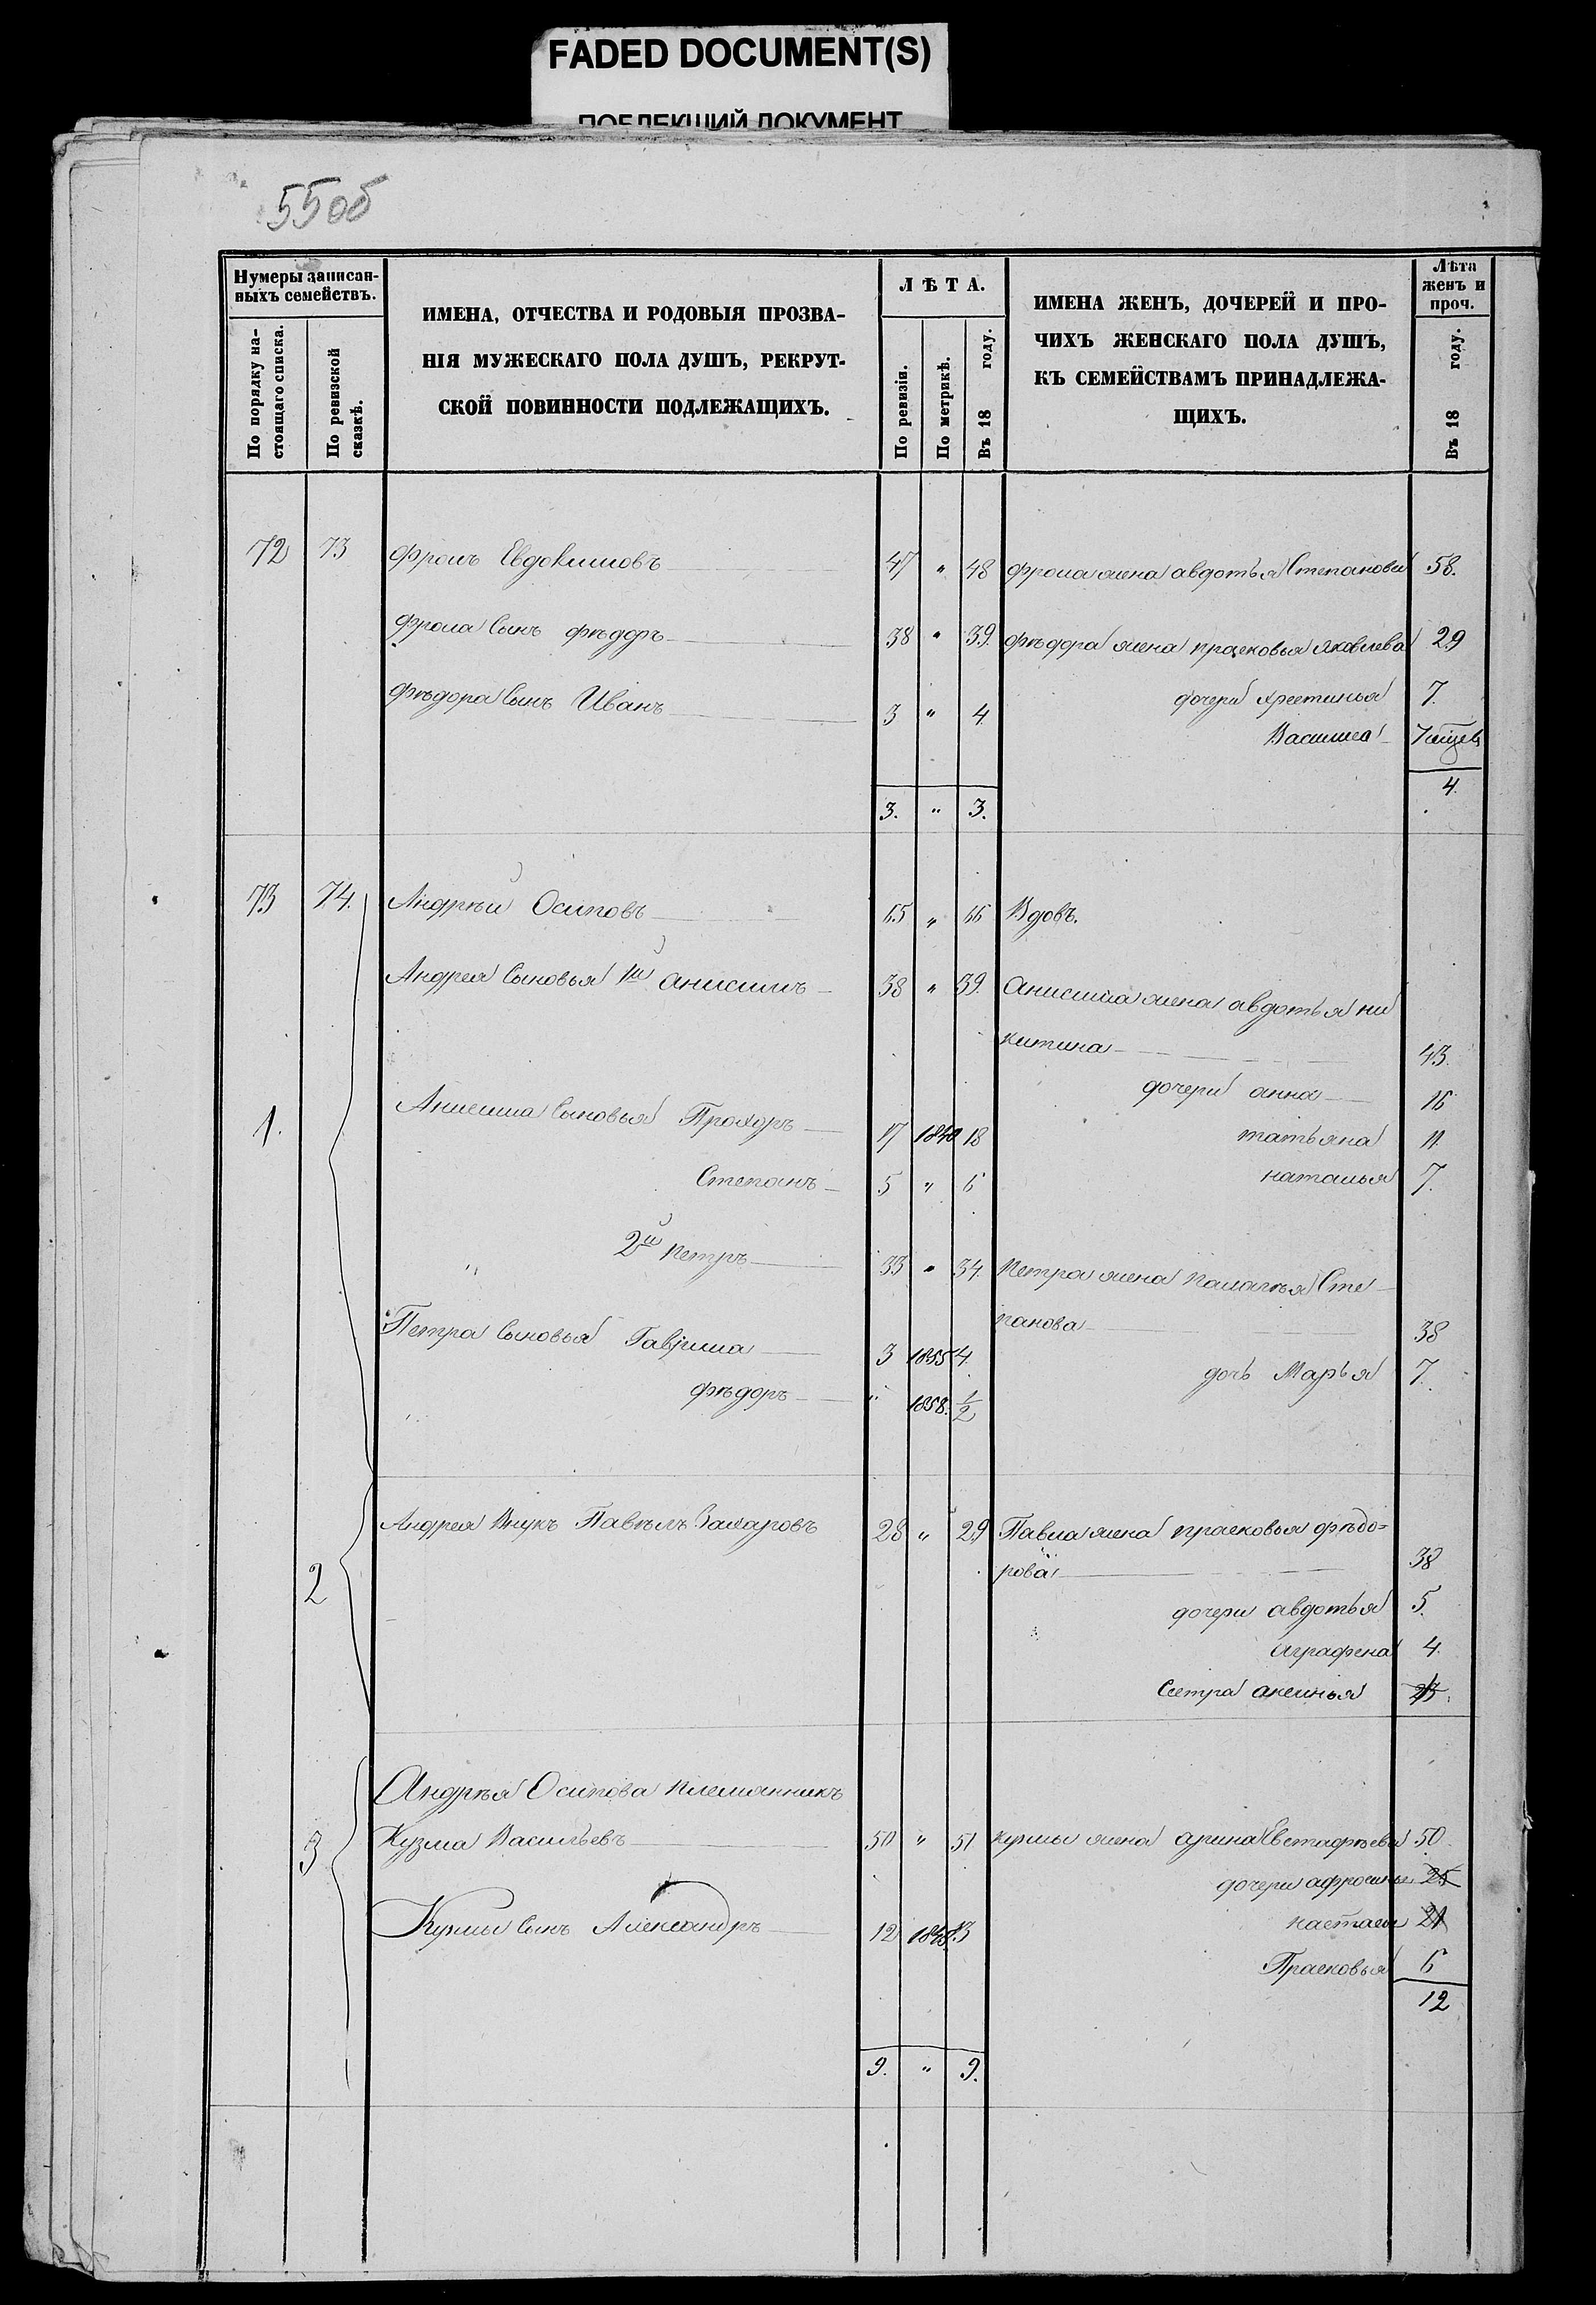 FADED DOCUMENT(S)
ПОБЛЕКШИЙ ДОКУМЕНТ
55об
Нумеры записан-
ныхъ семействъ.
По порядку на-
стоящаго списка.
По ревизской
сказкѣ.
ИМЕНА, ОТЧЕСТВА И РОДОВЫЯ ПРОЗВА-
НІЯ МУЖЕСКАГО ПОЛА ДУШЪ, РЕКРУТ-
СКОЙ ПОВИННОСТИ ПОДЛЕЖАЩИХЪ.
ЛѢТА.
По ревизіи.
По метрикѣ.
Въ 18 году.
ИМЕНА ЖЕНЪ, ДОЧЕРЕЙ И ПРО-
ЧИХЪ ЖЕНСКАГО ПОЛА ДУШЪ,
КЪ СЕМЕЙСТВАМЪ ПРИНАДЛЕЖА-
ЩИХЪ.
Лѣта
женъ и
проч.
Въ 18 году.
72 73 Фролъ Евдокимовъ 47 " 48 Фрола жена авдотья Степанова 58.
Фрола Сынъ Фѣдоръ 38 " 39. Фѣдора жена прасковья Яковлева 29
Фѣдора Сынъ Иванъ 3 " 4 дочери Хрестинья 7.
Василиса
4.
3. " 3.
73 74. Андрѣй Осиповъ 65 " 66 Вдовъ.
Андрея Сыновья 1й анисимъ 38 " 39. Анисима жена авдотья ни
китина 43.
дочери анна 16
1. Анисима Сыновья Прохоръ 17 1840 18 татьяна 11.
Степанъ 5 " 6 наталья 7.
2й петръ 33 " 34. Петра жена палагѣя Сте
панова 38
Петра Сыновья Гаврила 3 1855 4. дочь Марья 7.
Фѣдоръ " 1858. 1/2
Андрея Внукъ Павѣлъ Захаровъ 28 " 29 Павла жена прасковья фѣдо=
рова 38
2 дочери авдотья 5.
Аграфена 4.
Сестра аксинья 23.
Андрѣя Осипова племянникъ
3 Кузма Васильевъ 50 " 51 Кузмы жена арина Евстафѣева 50.
дочери афросинья 25
Кузмы Сынъ Александръ 12 1845. 13 настасья 21
Прасковья 6
12
9. " 9.